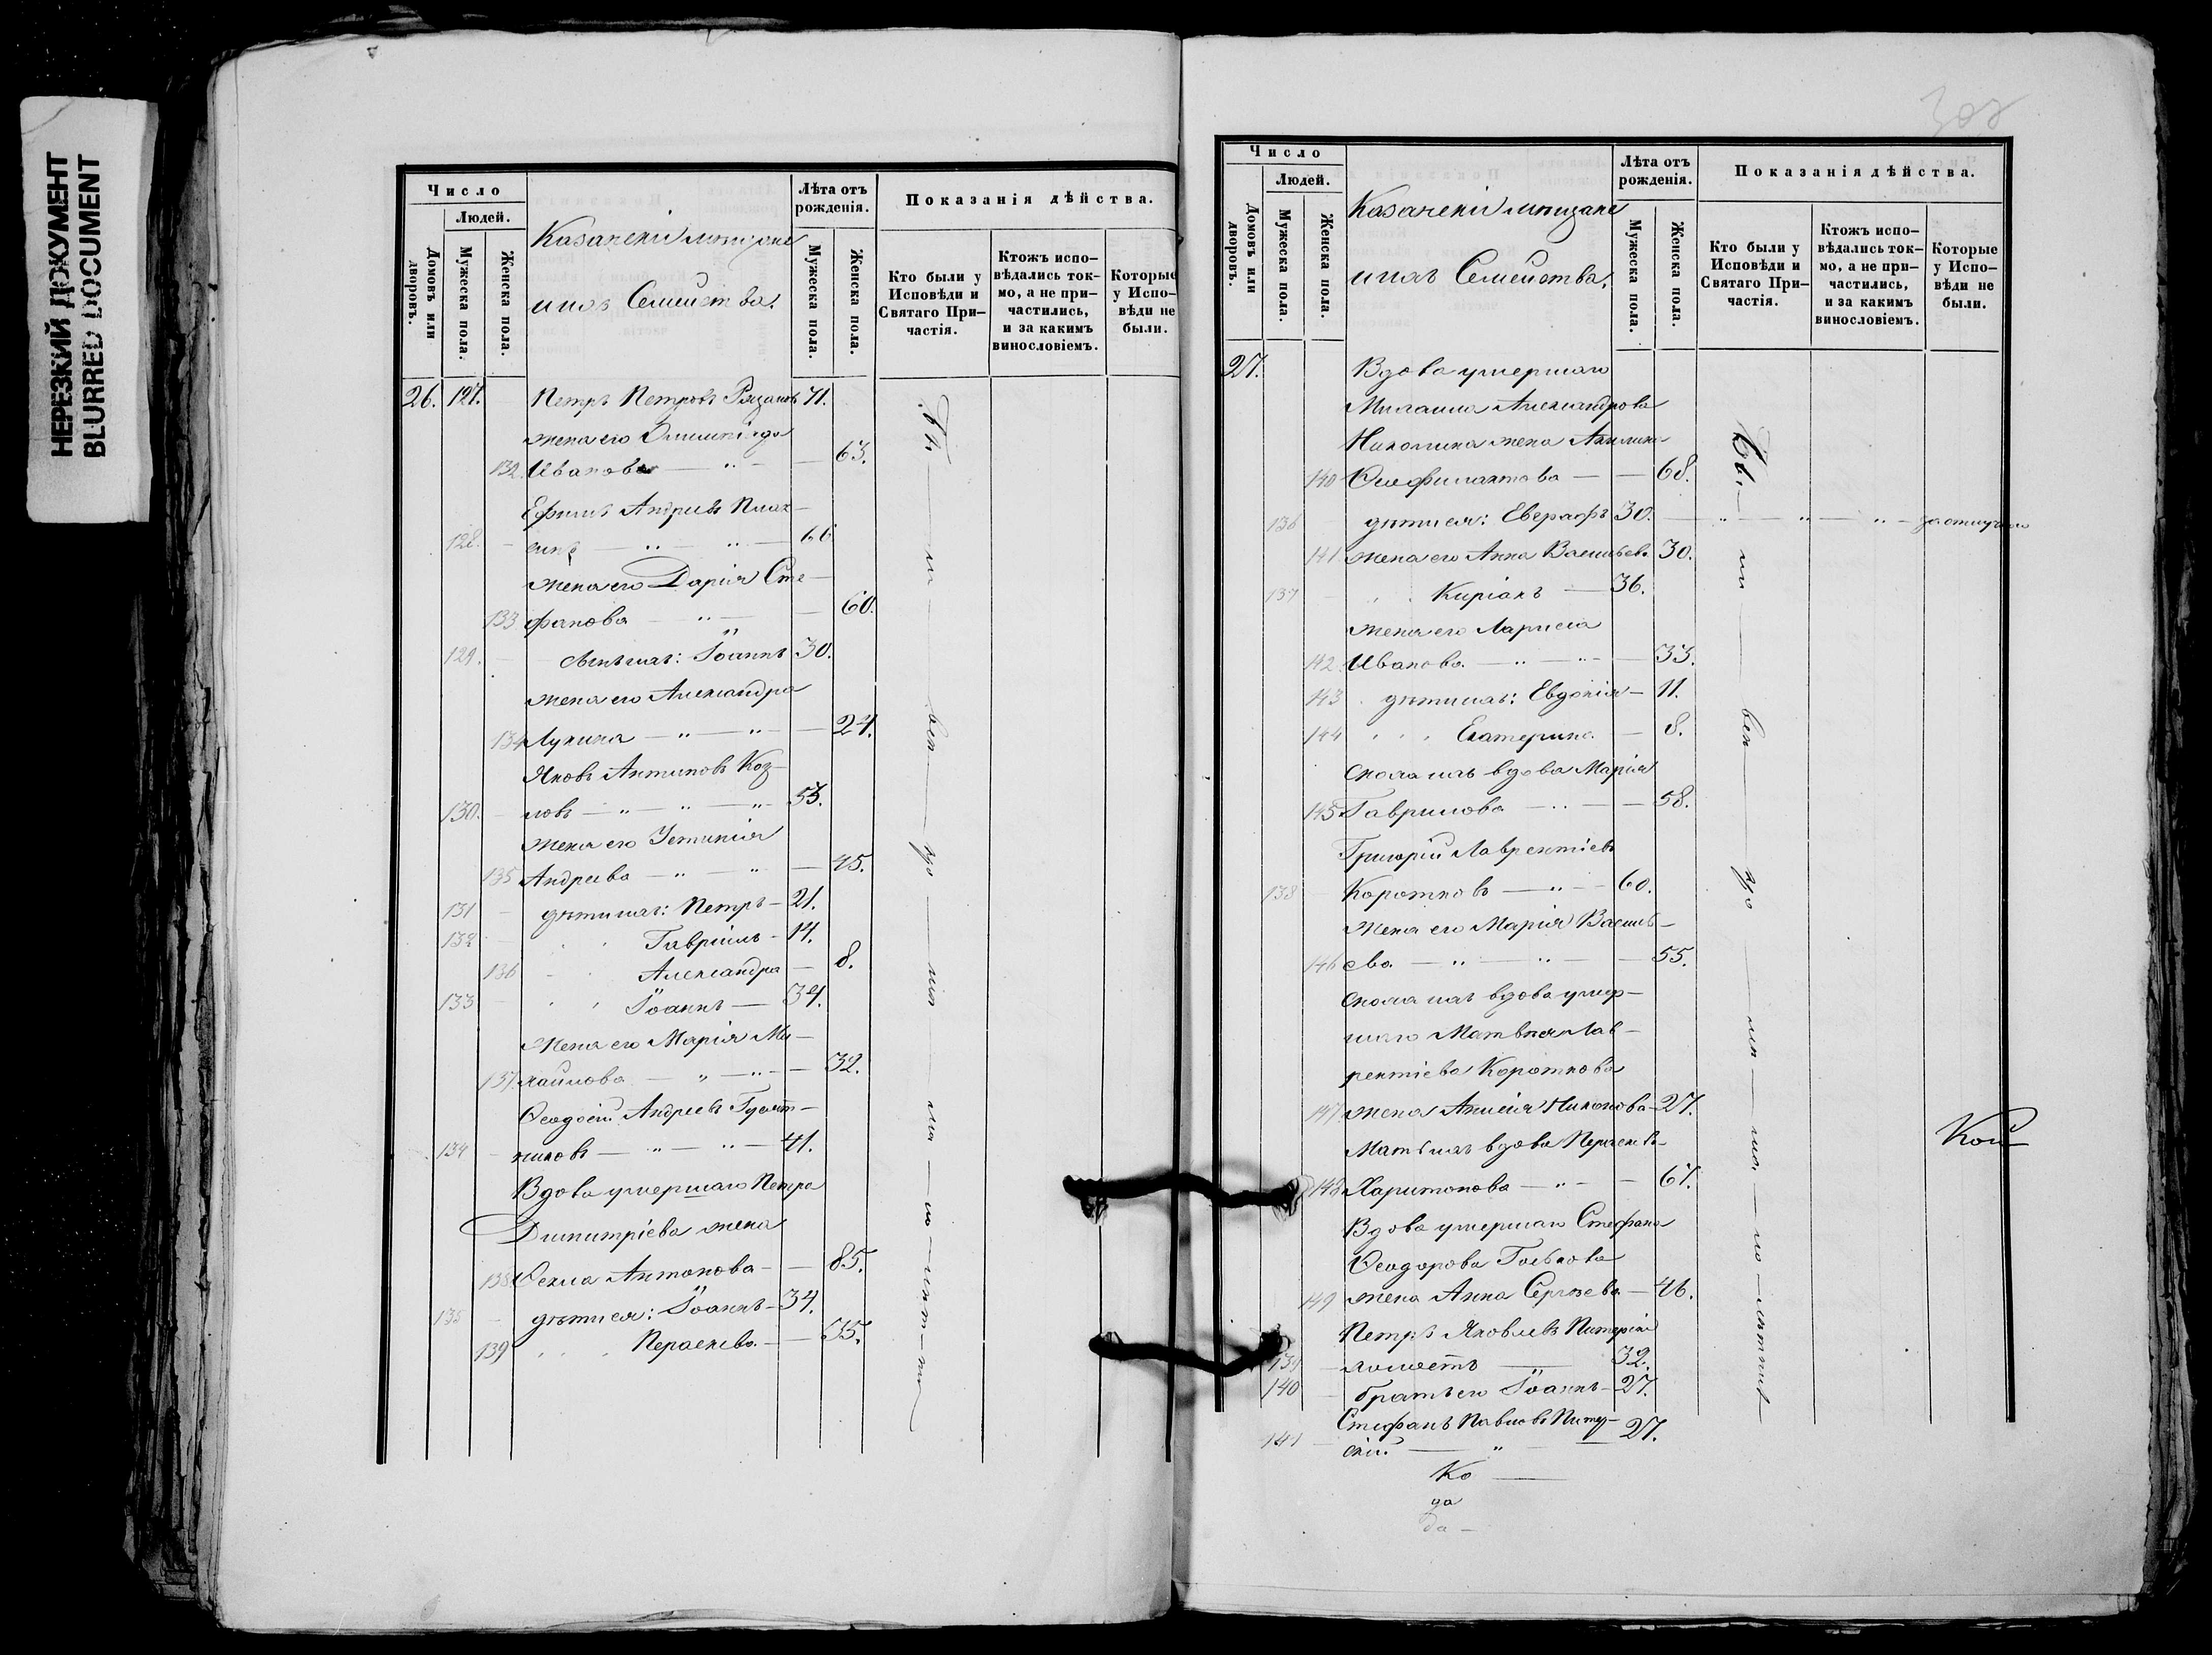 НЕРЕЗКИЙ ДОКУМЕНТ
BLURRED DOCUMENT
Число
Людей.
Домовъ или дворовъ.
Мужеска пола.
Женска пола.
Казачскіи мѣщане
и ихъ Семейства.
Лѣта отъ рожденія.
Мужеска пола.
Женска пола.
Показанія дѣйства.
Кто были у Исповѣди и Святаго При-частія.
Ктожъ испо-вѣдались ток-мо, а не при-частились, и за какимъ винословіемъ.
Которые у Испо-вѣди не были.
26. 127. Петръ Петровъ Рязановъ 71.
жена его
132 Иванова — 63.
Ефимъ Андреевъ
128. — 66
жена его Дарія Сте-
133 фанова — 60.
129. Сынъ ихъ: Іоаннъ 30.
жена его Александра
134 Лукина — 24.
Яковъ Антиповъ Коз-
130. ловъ — 55.
жена его Устинія
135 Андреева — 45.
131 дѣти ихъ: Петръ — 21.
132 Гавріилъ — 14.
136 Александра — 8.
133 Іоаннъ — 34.
Жена его Марія Ми-
137. хаилова — 32.
Ѳеодосій Андреевъ
134 никовъ — 41.
Вдова умершаго Петра
Димитріева жена
138 Ѳекла Антонова — 85.
135 дѣти ея: Іоаннъ — 34.
139 Параскева — 55.
308
Число
Людей.
Домовъ или дворовъ.
Мужеска пола.
Женска пола.
Казачскіи мѣщане
и ихъ Семейства.
Лѣта отъ рожденія.
Мужеска пола.
Женска пола.
Показанія дѣйства.
Кто были у Исповѣди и Святаго При-частія.
Ктожъ испо-вѣдались ток-мо, а не при-частились, и за какимъ винословіемъ.
Которые у Испо-вѣди не были.
27. Вдова умершаго
Михаила Александрова
Николина жена Акилина
140 Ѳеофилактова — 68.
136 дѣти ея: Евграфъ 30. за отлучкою
141 жена его Анна Васильева 30.
137 Киріакъ — 36.
жена его Лариса
142 Иванова — 33.
143 дѣти ихъ: Евдокія — 11.
144 Екатерина — 8.
Сноха ихъ вдова Марія
145 Гаврилова — 58.
Григорій Лаврентіевъ
138 Коротковъ — 60.
Жена его Марія Василь-
146 ева — 55.
Сноха ихъ вдова умер-
шаго Матвѣя Лав-
рентіева Короткова
147 жена Анисія Никонова — 27.
Мать ихъ вдова Параскева
148 Харитонова — 67.
Вдова умершаго Стефана
Ѳеодорова
149 жена Анна Сергѣева — 46.
Петръ Яковлевъ Питерскій
139 холостъ — 32.
140 братъ его Іоаннъ — 27.
Стефанъ Павловъ Питер-
141 скій — 27.
Ко